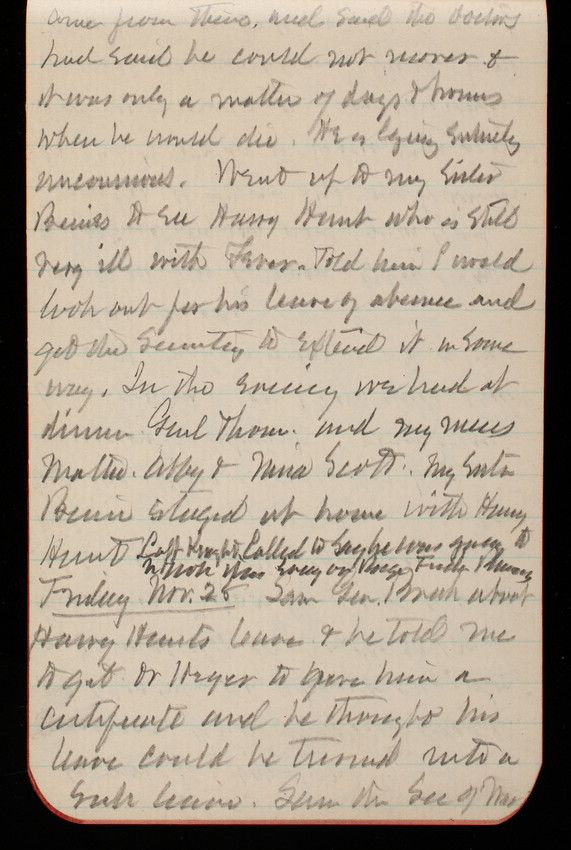 come from there, and said the doctors
had said he could not recover &
it was only a matter of days & hours
when he would die. He is lying entirely
unconscious. Went up to my Sister
Bessies to see Harry Hunt who is still
very ill with fever. Told him I would
look out for his leave of absence and
get the Secretary to extend it in some
way. In the evening we had at
dinner Genl Thom. and my nieces
Mattie. Abby & Nina Scott. My Sister
Bessie stayed at home with Harry
Hunt Called to say he was going to
Friday Nov. 28 Saw Gen. Breck about
Harry Hunts leave & he told me
to get Dr Heger to give him a
certificate and he thought his
leave could be turned into a
sick leave. Saw the Sec of War